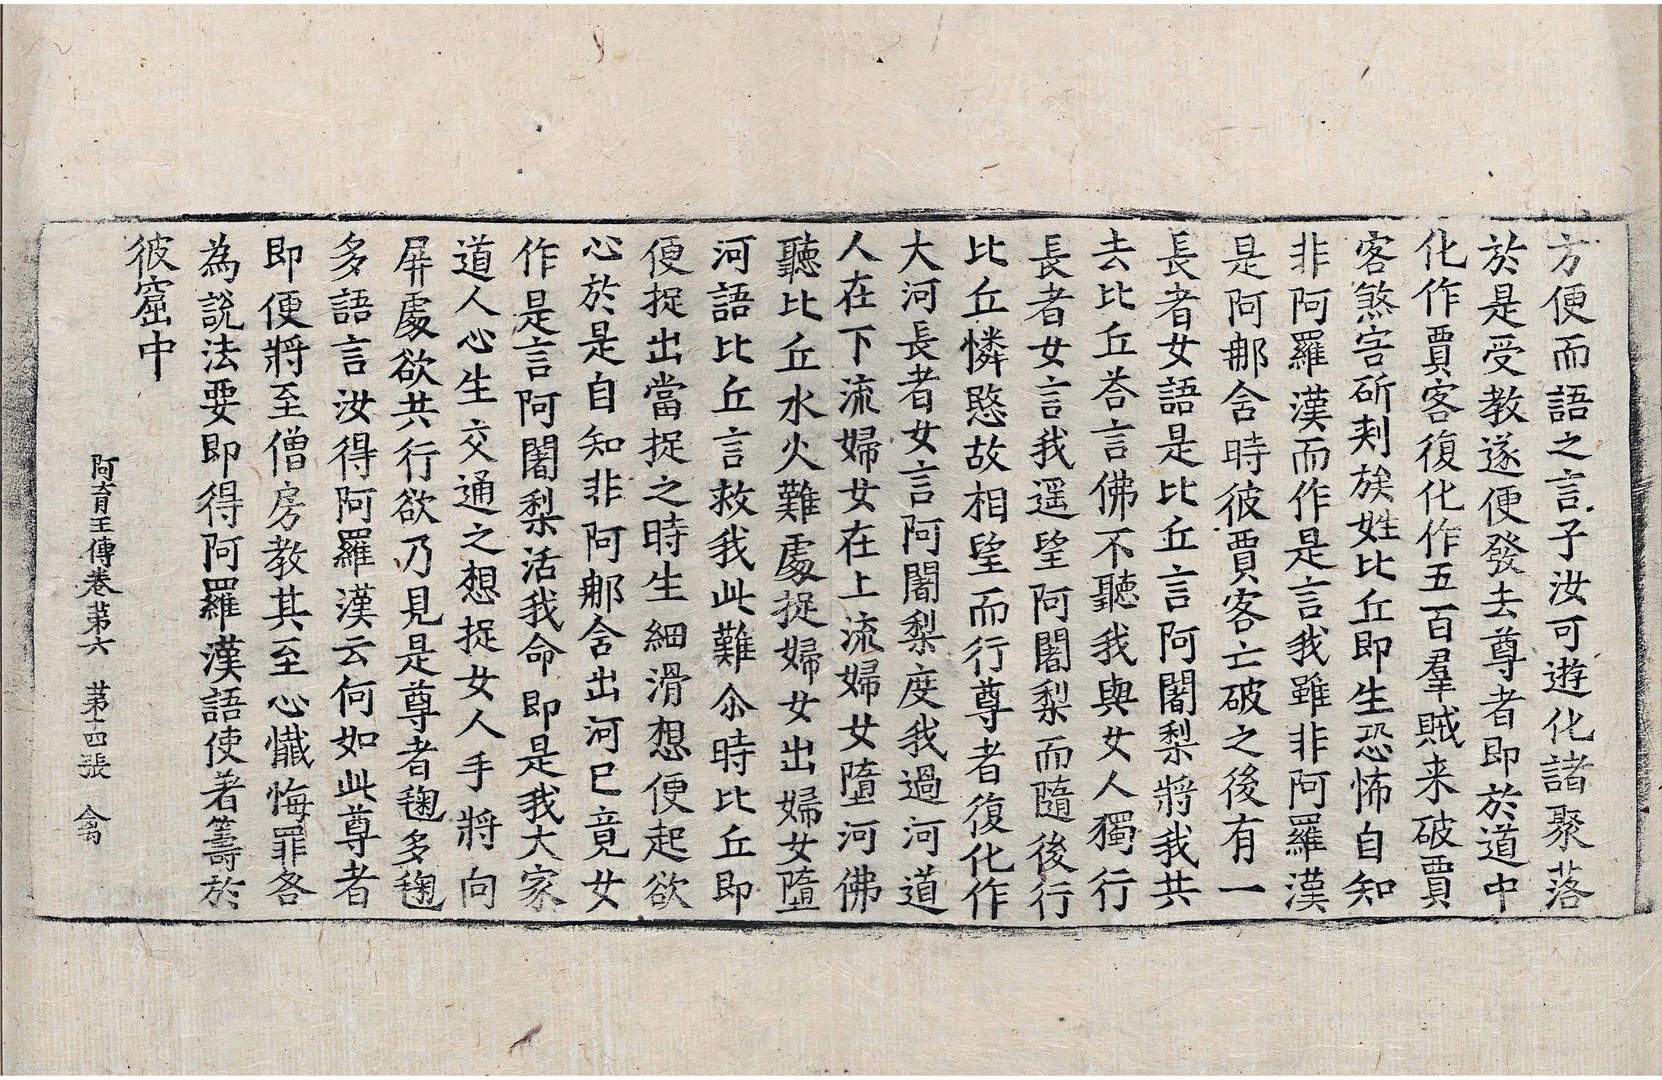 方便而語之言子汝可遊化諸聚落
於是受教遂便發去尊者即於道中
化作賈客復化作五百羣賊来破賈
客煞害斫刾族姓比丘即生恐怖自知
非阿羅漢而作是言我雖非阿羅漢
是阿郍含時彼賈客亡破之後有一
長者女語是比丘言阿闍梨將我共
去比丘荅言佛不聽我與女人獨行
長者女言我遥望阿闍梨而隨後行
比丘憐愍故相望而行尊者復化作
大河長者女言阿闍梨度我過河道
人在下流婦女在上流婦女墮河佛
聽比丘水火難處捉婦女出婦女墮
河語比丘言救我此難尒時比丘即
便捉出當捉之時生細滑想便起欲
心於是自知非阿郍含出河已竟女
作是言阿闍梨活我命即是我大家
道人心生交通之想捉女人手將向
屏處欲共行欲乃見是尊者毱多毱
多語言汝得阿羅漢云何如此尊者
即便將至僧房教其至心懺悔罪各
為説法要即得阿羅漢語使著籌於
彼窟中
阿育王傳卷第六 第十四張 禽